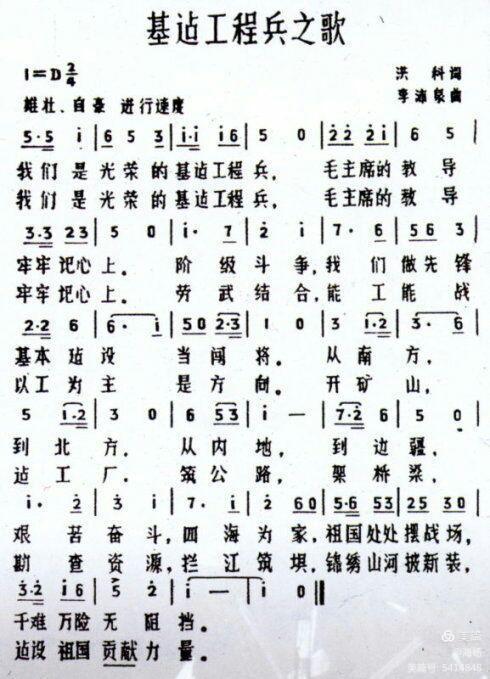 基迠工程兵之歌
1=D 2/4
洪 科词
李沛泉曲
雄壮、自豪 进行速度
5·5 i | 6 5 3 | i·i i6 | 5 0 | 22 2i | 6 5 |
我们是光荣的基迠工程兵, 毛主席的教导
我们是光荣的基迠工程兵, 毛主席的教导
3·3 23 | 5 0 | i· 7 | 2 i | 7· 6 | 56 3 |
牢牢记心上. 阶级斗争,我们做先锋
牢牢记心上. 劳武结合,能工能战
2·2 6 | 6· i | 50 2·3 | 1 0 | 3 i·2 | 3· 6 |
基本迠设 当闯将. 从南方,
以工为主 是方向. 开矿山,
5 i·2 | 3 0 | 6 53 | i — | 7·2 6 | 5 0 |
到北方. 从内地, 到边疆,
迠工厂. 筑公路, 架桥梁,
i· 2 | 3 i | 7· i | 2 60 | 5·6 53 | 25 30 |
艰苦奋斗,四海为家,祖国处处摆战场,
勘查资源,拦江筑坝,锦绣山河披新装,
3·2 i6 | 5 2 | i — | i 0 ‖
千难万险无阻挡.
迠设祖国贡献力量.
美篇
美篇号: